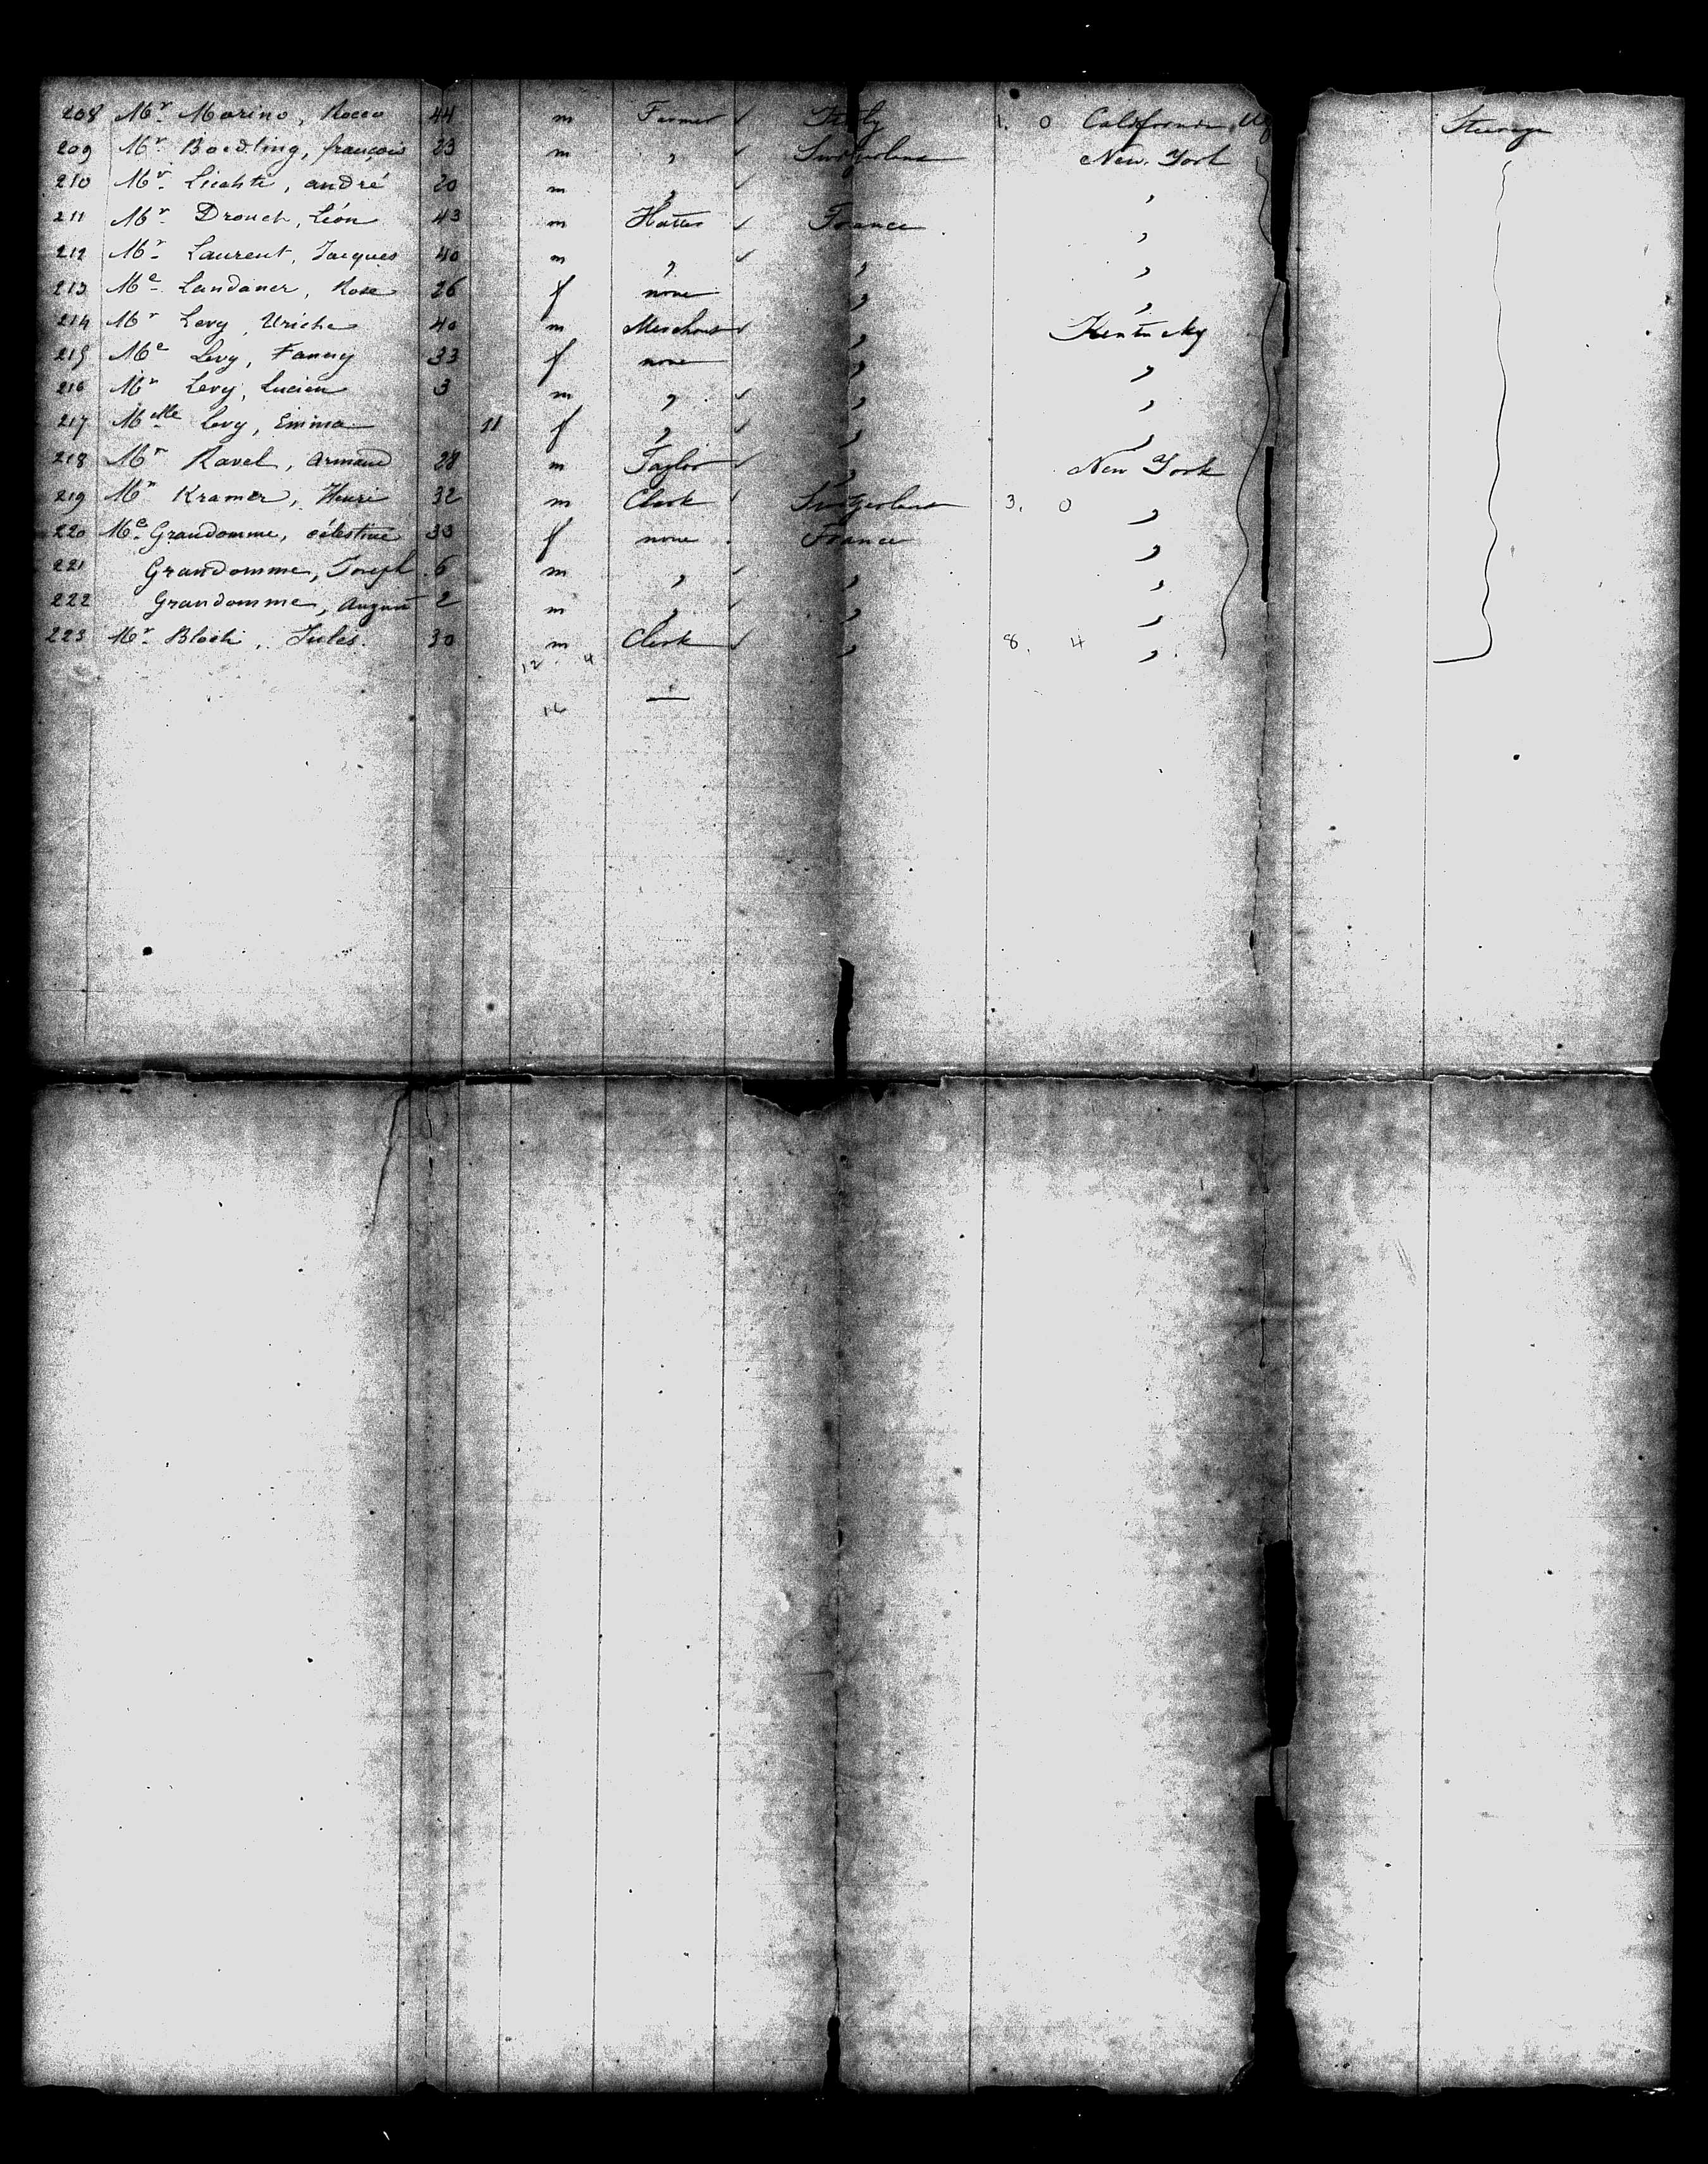 208 Mr Marino, Rocco 44 m Farmer Italy 1. 0 California Steerage
209 Mr Boedling, françois 23 m " Switzerland New York
210 Mr Liechti, andré 20 m " "
211 Mr Drouet, Léon 43 m Hatter France "
212 Mr Laurent, Jacques 40 m " " "
213 Me Landauer, Rose 26 f none " "
214 Mr Levy 40 m Merchant " Kentucky
215 Me Levy, Fanny 33 f none " "
216 Mr Levy, Lucien 3 m " " "
217 Melle Levy, Emma 11 f " " "
218 Mr Ravel, Armand 28 m Taylor " New York
219 Mr Kramer, Henri 32 m Clerk Switzerland 3. 0 "
220 Me Grandomme, célestine 33 f none France "
221 Grandomme, Joseph 6 m " " "
222 Grandomme, August 2 m " " "
223 Mr Bloch, Jules. 30 m Clerk " 8. 4 "
12 4
16